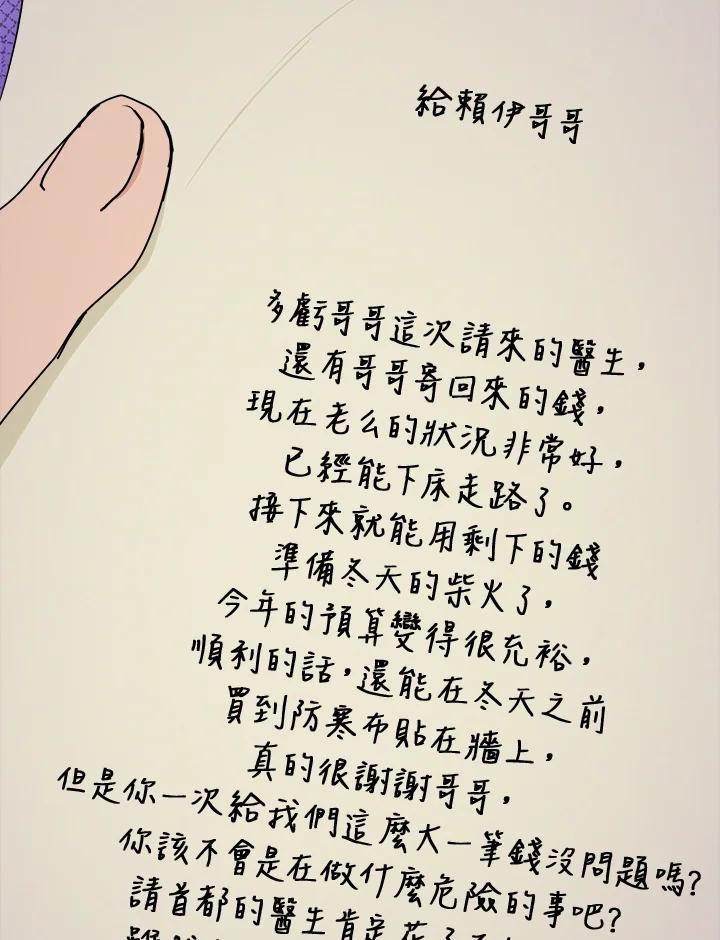 給賴伊哥哥
多虧哥哥這次請來的醫生，
還有哥哥寄回來的錢，
現在老么的狀況非常好，
已經能下床走路了。
接下來就能用剩下的錢
準備冬天的柴火了，
今年的預算變得很充裕，
順利的話，還能在冬天之前
買到防寒布貼在牆上，
真的很謝謝哥哥，
但是你一次給我們這麼大一筆錢沒問題嗎？
你該不會是在做什麼危險的事吧？
請首都的醫生肯定花了